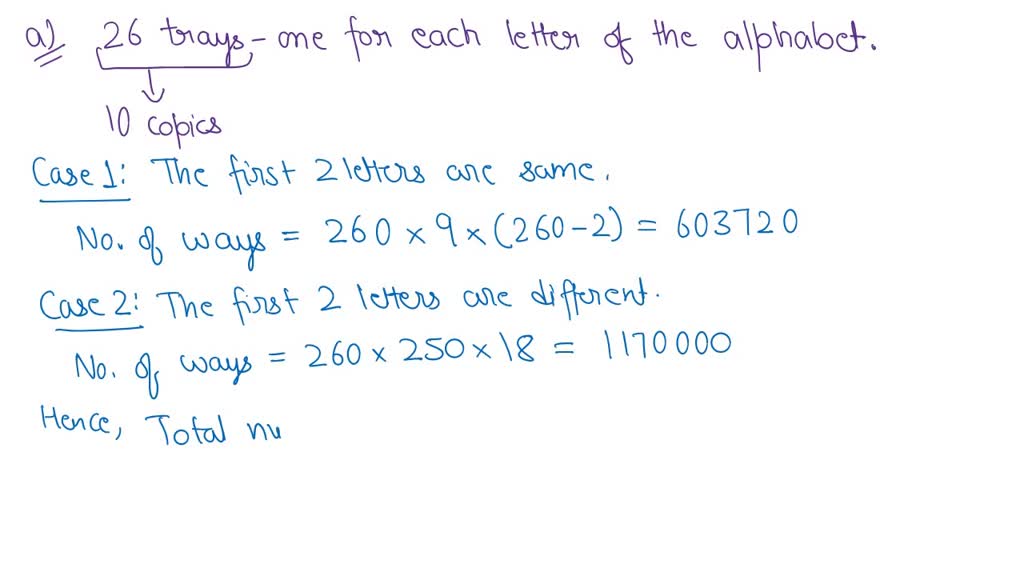 a) 26 trays - one for each letter of the alphabet.
10 copies
Case 1: The first 2 letters are same.
No. of ways = 260 × 9 × (260 - 2) = 603720
Case 2: The first 2 letters are different.
No. of ways = 260 × 250 × 18 = 1170000
Hence, Total nu